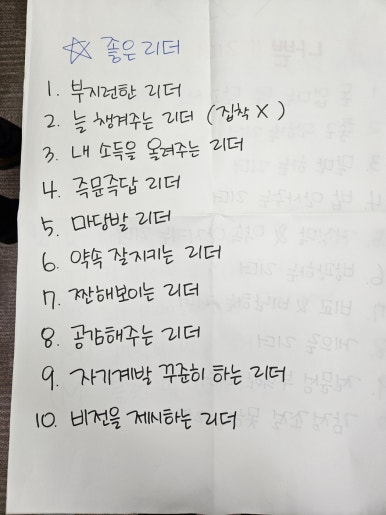 ☆ 좋은 리더
1. 부지런한 리더
2. 늘 챙겨주는 리더 (집착 X)
3. 내 소득을 올려주는 리더
4. 즉문즉답 리더
5. 마당발 리더
6. 약속 잘지키는 리더
7. 짠해보이는 리더
8. 공감해주는 리더
9. 자기계발 꾸준히 하는 리더
10. 비전을 제시하는 리더